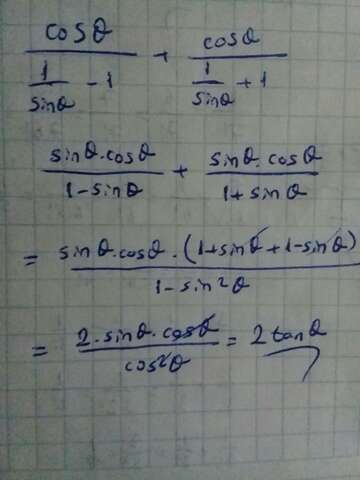 cosθ / (1/sinθ - 1) + cosθ / (1/sinθ + 1)
sinθ·cosθ / 1-sinθ + sinθ·cosθ / 1+sinθ
= sinθ·cosθ·(1+sinθ+1-sinθ) / 1-sin²θ
= 2·sinθ·cosθ / cos²θ = 2tanθ